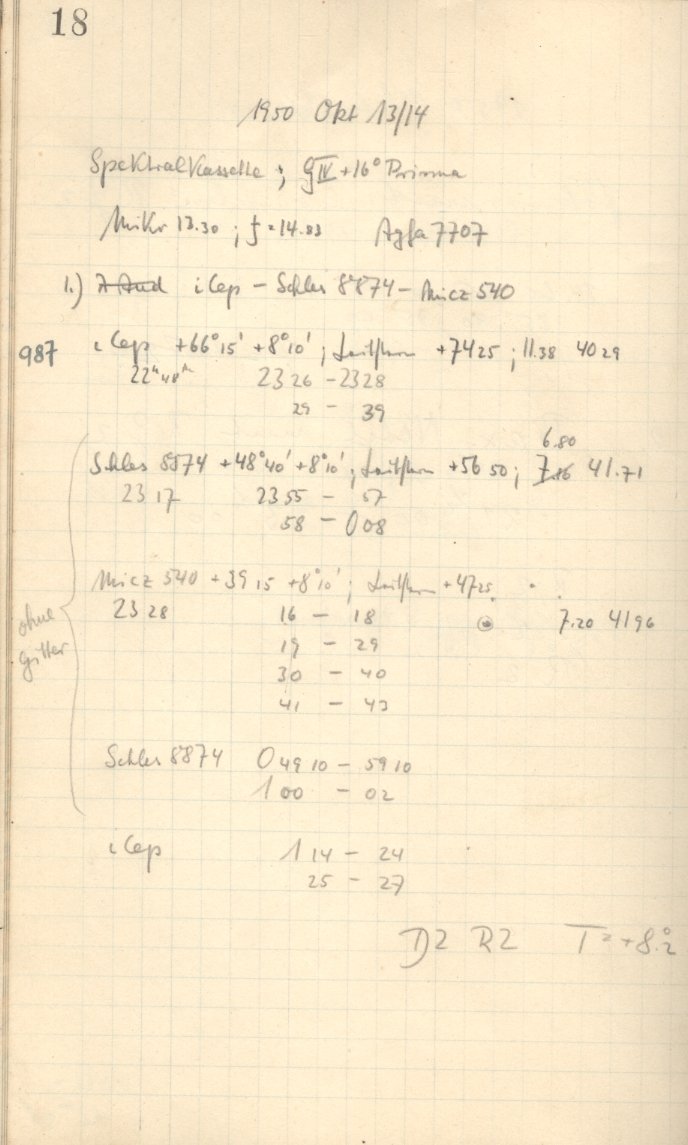 18
1950 Okt 13/14
Spektralkassette ; G IV + 16° Prisma
Mikr 13.30 ; f = 14.83 Agfa 7707
1.) A And ι Cep - Schles 8874 - Micz 540
987 ι Cep +66° 15' +8° 10' ; Leitstern +74 25 ; 11.38 40 29
22h 48m 23 26 - 23 28
29 - 39
6.80
Schles 8874 +48° 40' +8° 10' ; Leitstern +56 50 ; 7.86 41.71
23 17 23 55 - 57
58 - 0 08
Micz 540 +39 15 +8° 10' ; Leitstern +47 25
23 28 16 - 18 7.20 41 96
ohne Gitter
19 - 29
30 - 40
41 - 43
Schles 8874 0 49 10 - 59 10
1 00 - 02
ι Cep 1 14 - 24
25 - 27
D2 R2 T = +8.°2